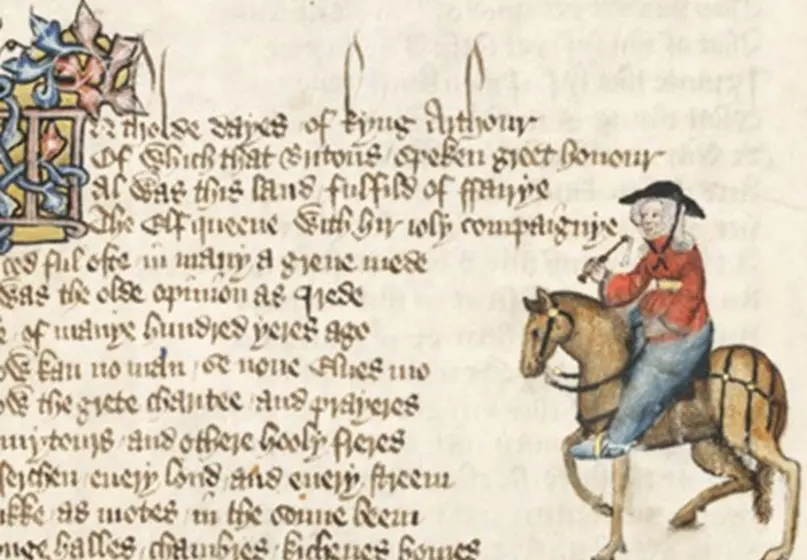 In tholde dayes of kyng Arthour
Of which that Britons speken greet honour
Al was this land fulfild of ffairye
The Elf queene with hir ioly compaignye
ced ful ofte in many a grene mede
was the olde opinion as I rede
e of manye hundred yeres ago
ow kan no man se none Elues mo
ow the grete charitee and prayeres
mytours and othere hooly freres
serchen euery lond and euery streem
ikke as motes in the sonne beem
nge halles chambres kichenes boures